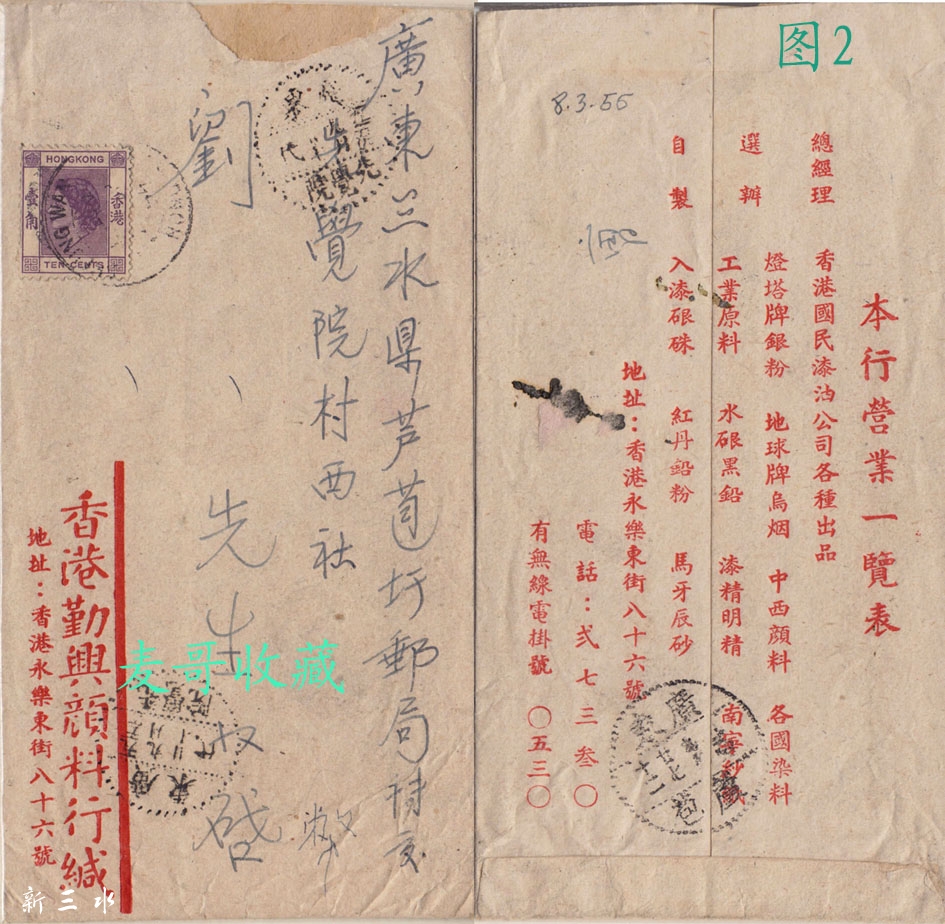 廣東三水県芦苞圩郵局轉交
先覺院村西社
劉
先生收啓
HONGKONG
香港
壹角
TEN·CENTS
香港勤興顔料行緘
地址：香港永樂東街八十六號
麦哥收藏
新三水
图2
8.3.55
本行營業一覽表
總經理 香港國民漆油公司各種出品
選辦 燈塔牌銀粉 地球牌烏烟 中西顔料 各國染料
工業原料 水硍黑鉛 漆精明精 南寧
自製 入漆硍硃 紅丹鉛粉 馬牙辰砂
地址：香港永樂東街八十六號
電話：弍七三叁〇
有無線電掛號 〇五三〇
廣東